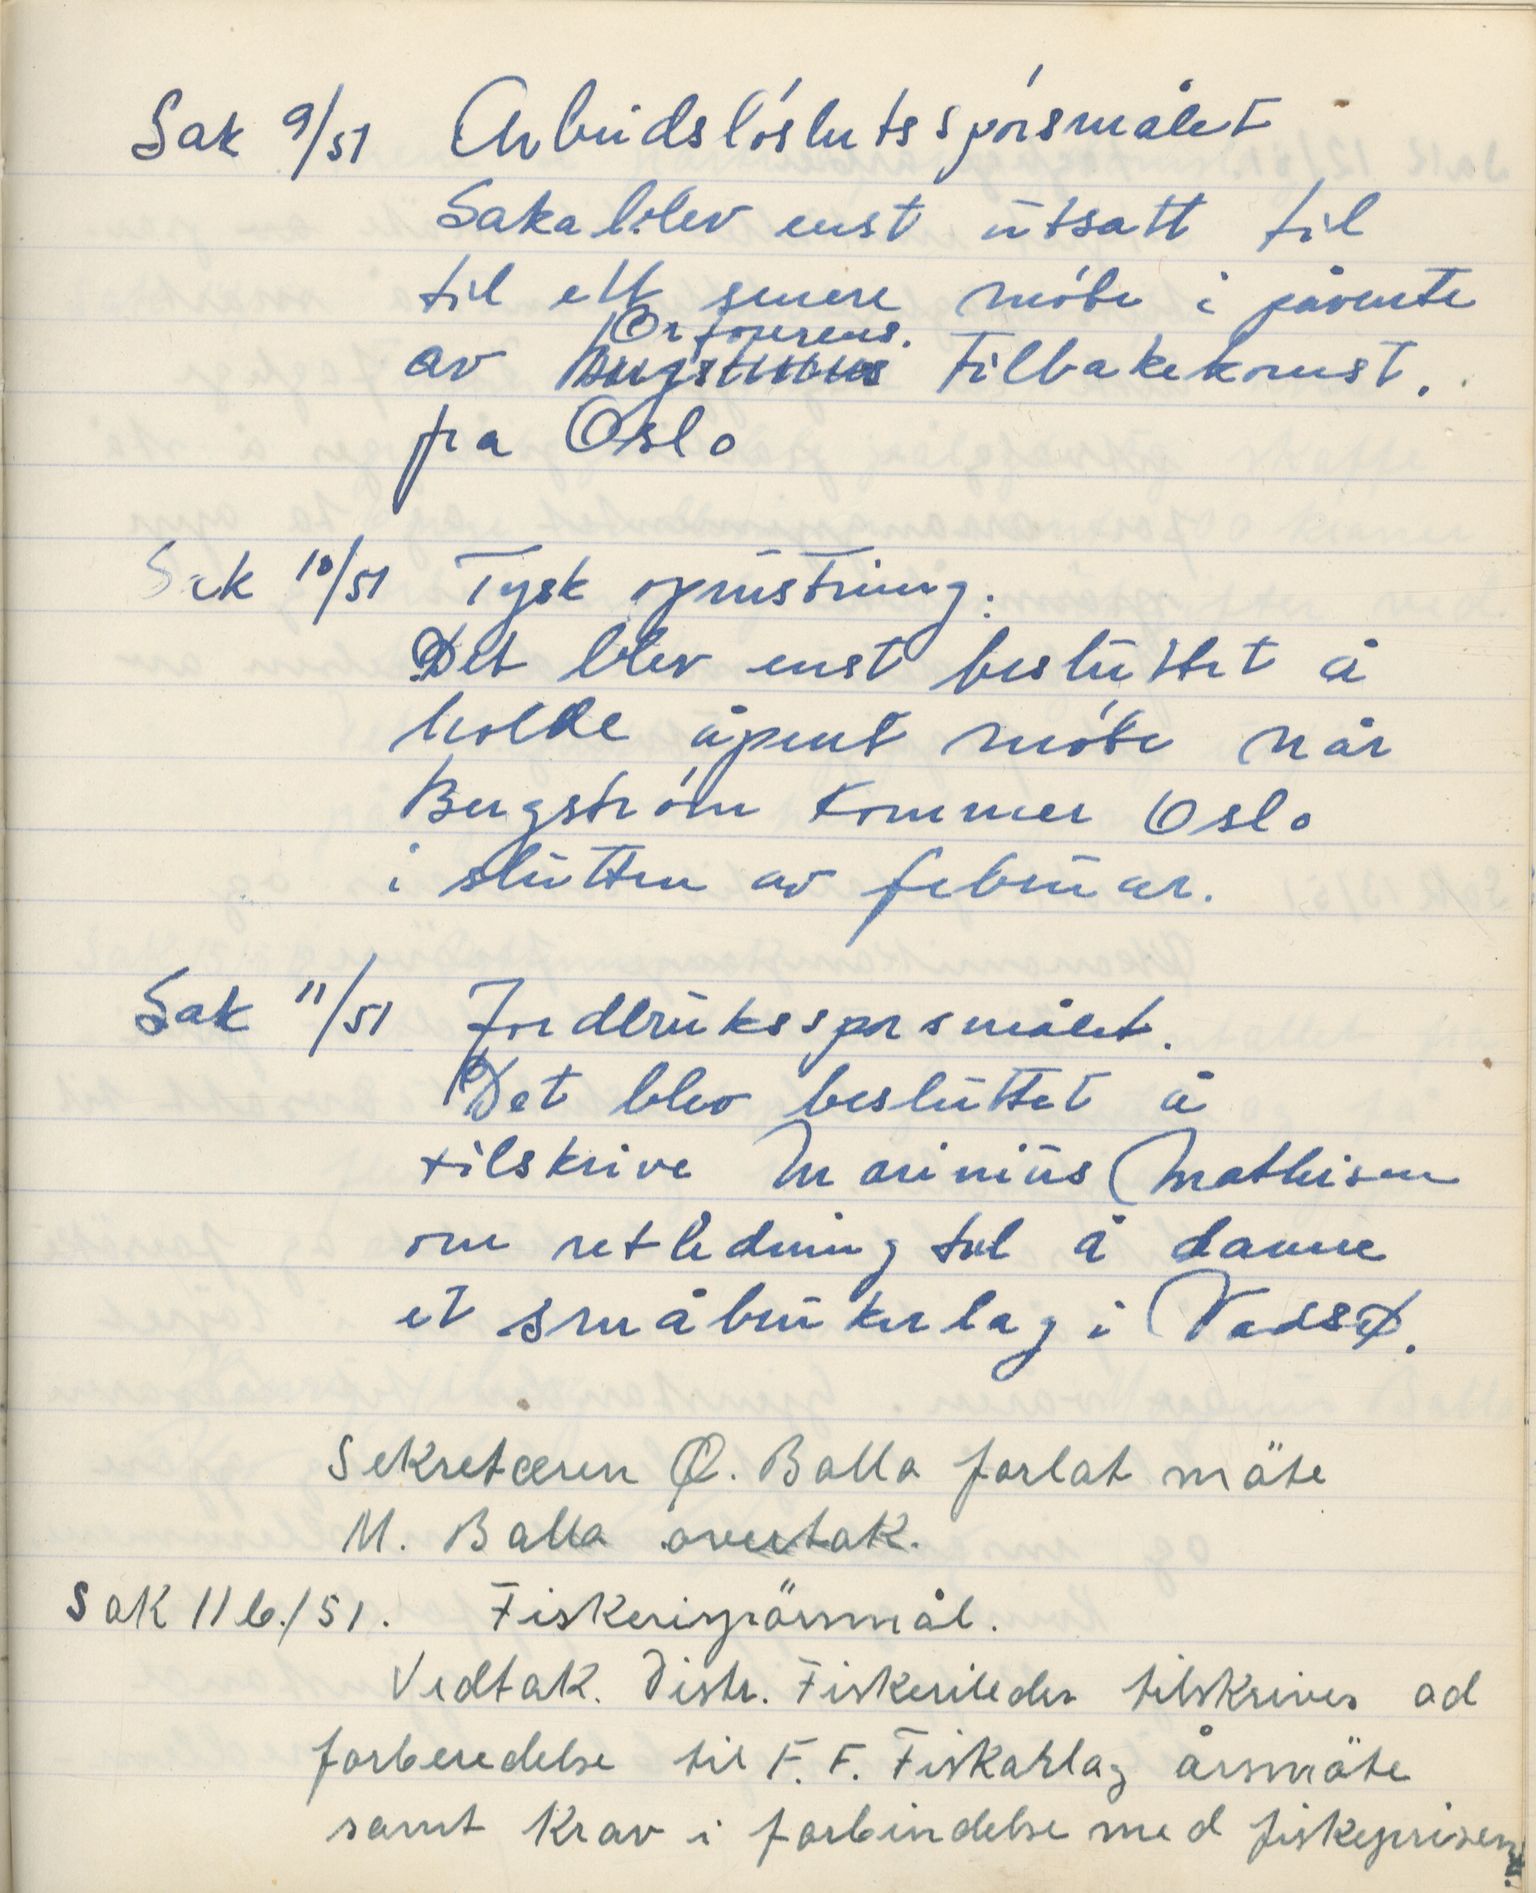 Sak 9/51 Arbeidslóshetsspórsmålet
Saka blev enst utsatt til
til ett senere móte i påvente
Ordförerens.
av Bergstrøms tilbakekomst.
fra Oslo
Sak 10/51 Tysk oprustning.
Det blev enst besluttet å
holde åpent móte når
Bergstróm kommer Oslo
i slutten av februar.
Sak 11/51 Jordbruksspørsmålet.
Det blev besluttet å
tilskrive Marinius Mathisen
om retledning tel å danne
et småbrukerlag i Vadsø.
Sekretæren Ø. Balla forlot möte
M. Balla overtok.
Sak 11 b./51. Fiskerispörsmål.
Vedtak. Distr. Fiskerileder tilskrives ad
forberedelse til F. F. Fiskarlag årsmöte
samt krav i forbindelse med fiskeprisen